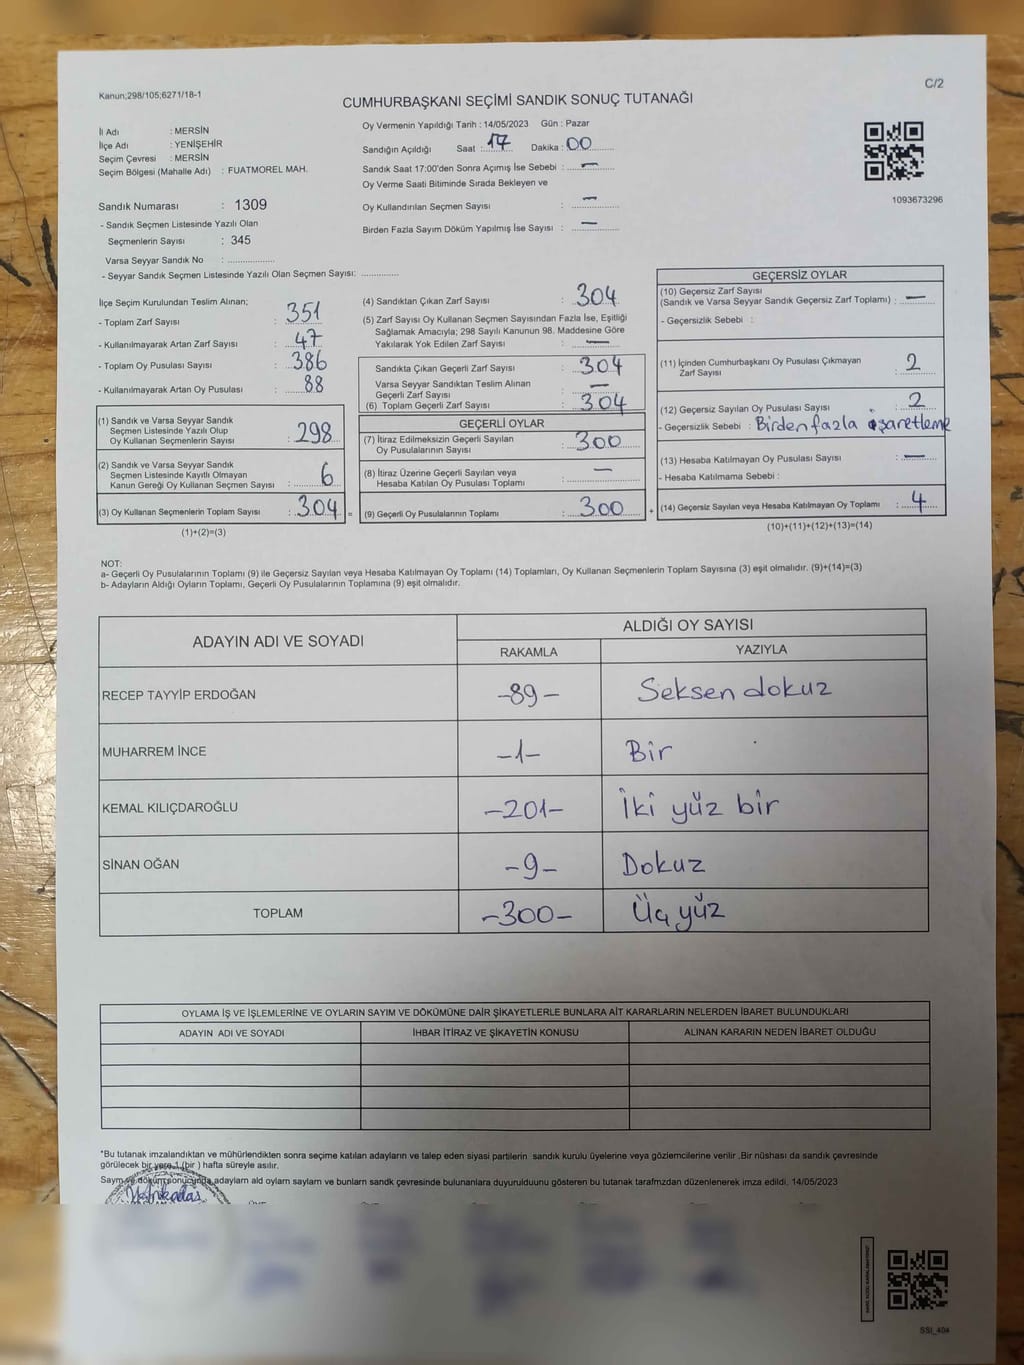 Kanun;298/105;6271/18-1
C/2
CUMHURBAŞKANI SEÇİMİ SANDIK SONUÇ TUTANAĞI
İl Adı : MERSİN
İlçe Adı : YENİŞEHİR
Seçim Çevresi : MERSİN
Seçim Bölgesi (Mahalle Adı) : FUATMOREL MAH.
Sandık Numarası : 1309
- Sandık Seçmen Listesinde Yazılı Olan
Seçmenlerin Sayısı : 345
Varsa Seyyar Sandık No : ..................
- Seyyar Sandık Seçmen Listesinde Yazılı Olan Seçmen Sayısı: ..............
Oy Vermenin Yapıldığı Tarih : 14/05/2023 Gün : Pazar
Sandığın Açıldığı Saat : 17 Dakika : 00
Sandık Saat 17:00'den Sonra Açımış İse Sebebi : —
Oy Verme Saati Bitiminde Sırada Bekleyen ve
Oy Kullandırılan Seçmen Sayısı : —
Birden Fazla Sayım Döküm Yapılmış İse Sayısı : —
1093673296
İlçe Seçim Kurulundan Teslim Alınan;
- Toplam Zarf Sayısı : 351
- Kullanılmayarak Artan Zarf Sayısı : 47
- Toplam Oy Pusulası Sayısı : 386
- Kullanılmayarak Artan Oy Pusulası : 88
(1) Sandık ve Varsa Seyyar Sandık
Seçmen Listesinde Yazılı Olup
Oy Kullanan Seçmenlerin Sayısı : 298
(2) Sandık ve Varsa Seyyar Sandık
Seçmen Listesinde Kayıtlı Olmayan
Kanun Gereği Oy Kullanan Seçmen Sayısı : 6
(3) Oy Kullanan Seçmenlerin Toplam Sayısı : 304 =
(1)+(2)=(3)
(4) Sandıktan Çıkan Zarf Sayısı : 304
(5) Zarf Sayısı Oy Kullanan Seçmen Sayısından Fazla İse, Eşitliği
Sağlamak Amacıyla; 298 Sayılı Kanunun 98. Maddesine Göre
Yakılarak Yok Edilen Zarf Sayısı : —
Sandıkta Çıkan Geçerli Zarf Sayısı : 304
Varsa Seyyar Sandıktan Teslim Alınan
Geçerli Zarf Sayısı : —
(6) Toplam Geçerli Zarf Sayısı : 304
GEÇERLİ OYLAR
(7) İtiraz Edilmeksizin Geçerli Sayılan
Oy Pusulalarının Sayısı : 300
(8) İtiraz Üzerine Geçerli Sayılan veya
Hesaba Katılan Oy Pusulası Toplamı : —
(9) Geçerli Oy Pusulalarının Toplamı : 300 +
GEÇERSİZ OYLAR
(10) Geçersiz Zarf Sayısı
(Sandık ve Varsa Seyyar Sandık Geçersiz Zarf Toplamı) : —
- Geçersizlik Sebebi :
(11) İçinden Cumhurbaşkanı Oy Pusulası Çıkmayan
Zarf Sayısı : 2
(12) Geçersiz Sayılan Oy Pusulası Sayısı : 2
- Geçersizlik Sebebi : Birden fazla işaretleme
(13) Hesaba Katılmayan Oy Pusulası Sayısı : —
- Hesaba Katılmama Sebebi :
(14) Geçersiz Sayılan veya Hesaba Katılmayan Oy Toplamı : 4
(10)+(11)+(12)+(13)=(14)
NOT:
a- Geçerli Oy Pusulalarının Toplamı (9) ile Geçersiz Sayılan veya Hesaba Katılmayan Oy Toplamı (14) Toplamları, Oy Kullanan Seçmenlerin Toplam Sayısına (3) eşit olmalıdır. (9)+(14)=(3)
b- Adayların Aldığı Oyların Toplamı, Geçerli Oy Pusulalarının Toplamına (9) eşit olmalıdır.
ADAYIN ADI VE SOYADI ALDIĞI OY SAYISI
RAKAMLA YAZIYLA
RECEP TAYYİP ERDOĞAN -89- Seksen dokuz
MUHARREM İNCE -1- Bir
KEMAL KILIÇDAROĞLU -201- İki yüz bir
SİNAN OĞAN -9- Dokuz
TOPLAM -300- Üç yüz
OYLAMA İŞ VE İŞLEMLERİNE VE OYLARIN SAYIM VE DÖKÜMÜNE DAİR ŞİKAYETLERLE BUNLARA AİT KARARLARIN NELERDEN İBARET BULUNDUKLARI
ADAYIN ADI VE SOYADI İHBAR İTİRAZ VE ŞİKAYETİN KONUSU ALINAN KARARIN NEDEN İBARET OLDUĞU
*Bu tutanak imzalandıktan ve mühürlendikten sonra seçime katılan adayların ve talep eden siyasi partilerin sandık kurulu üyelerine veya gözlemcilerine verilir .Bir nüshası da sandık çevresinde
görülecek bir yere 1 (bir ) hafta süreyle asılır.
Sayım ve döküm sonucunda adayların ald oyların sayların ve bunların sandk çevresinde bulunanlara duyurulduunu gösteren bu tutanak tarafmzdan düzenlenerek imza edildi. 14/05/2023
SSI_404